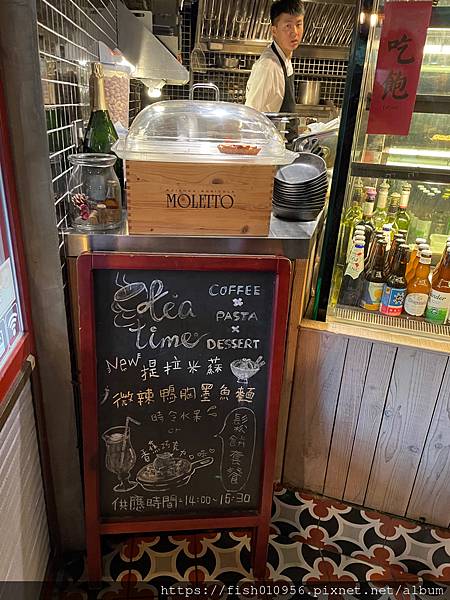 吃
飽
AZIENDA AGRICOLA
MOLETTO
tea
time
COFFEE
×
PASTA
×
DESSERT
New 提拉米蘇
微辣鴨胸墨魚麵
時令水果
or
香蕉巧克
鬆餅套餐
供應時間=14:00~16:30
https://fish010956.pixnet.net/album